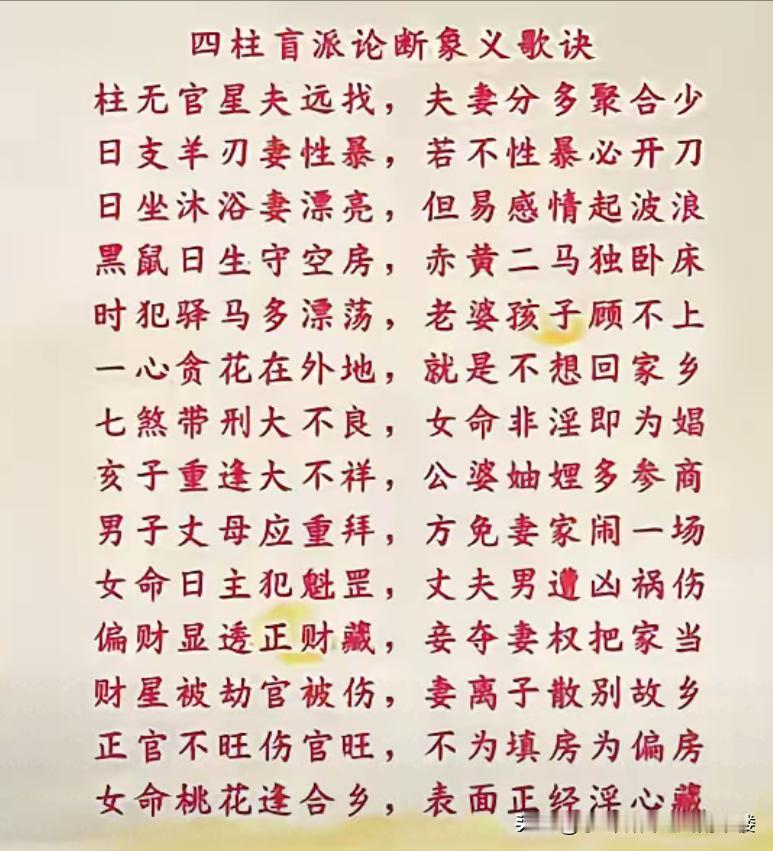 四柱盲派论断象义歌诀
柱无官星夫远找，夫妻分多聚合少
日支羊刃妻性暴，若不性暴必开刀
日坐沐浴妻漂亮，但易感情起波浪
黑鼠日生守空房，赤黄二马独卧床
时犯驿马多漂荡，老婆孩子顾不上
一心贪花在外地，就是不想回家乡
七煞带刑大不良，女命非淫即为娼
亥子重逢大不祥，公婆妯娌多参商
男子丈母应重拜，方免妻家闹一场
女命日主犯魁罡，丈夫男遭凶祸伤
偏财显透正财藏，妾夺妻权把家当
财星被劫官被伤，妻离子散别故乡
正官不旺伤官旺，不为填房为偏房
女命桃花逢合乡，表面正经淫心藏